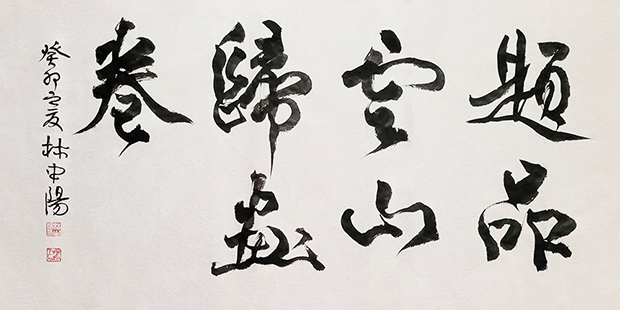 題品
雲山
歸畫
卷
癸卯之夏林中陽